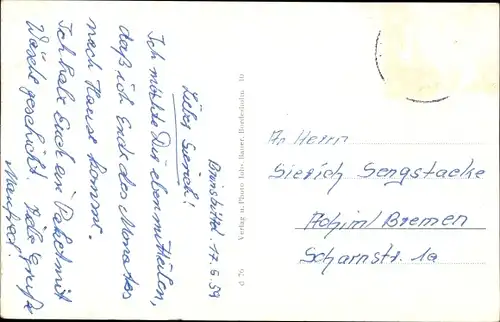 Brunsbüttel, 17.6.59
Lieber Sierich!
Ich möchte Dir eben mitteilen,
daß ich Ende des Monates
nach Hause komme.
Ich habe Euch ein Paket mit
Wäsche geschickt. Viele Grüße
Manfred.
d 76 Verlag u. Photo Inh. Bauer, Bordesholm 10
An Herrn
Sierich Sengstacke
Achim/Bremen
Scharnstr. 1a